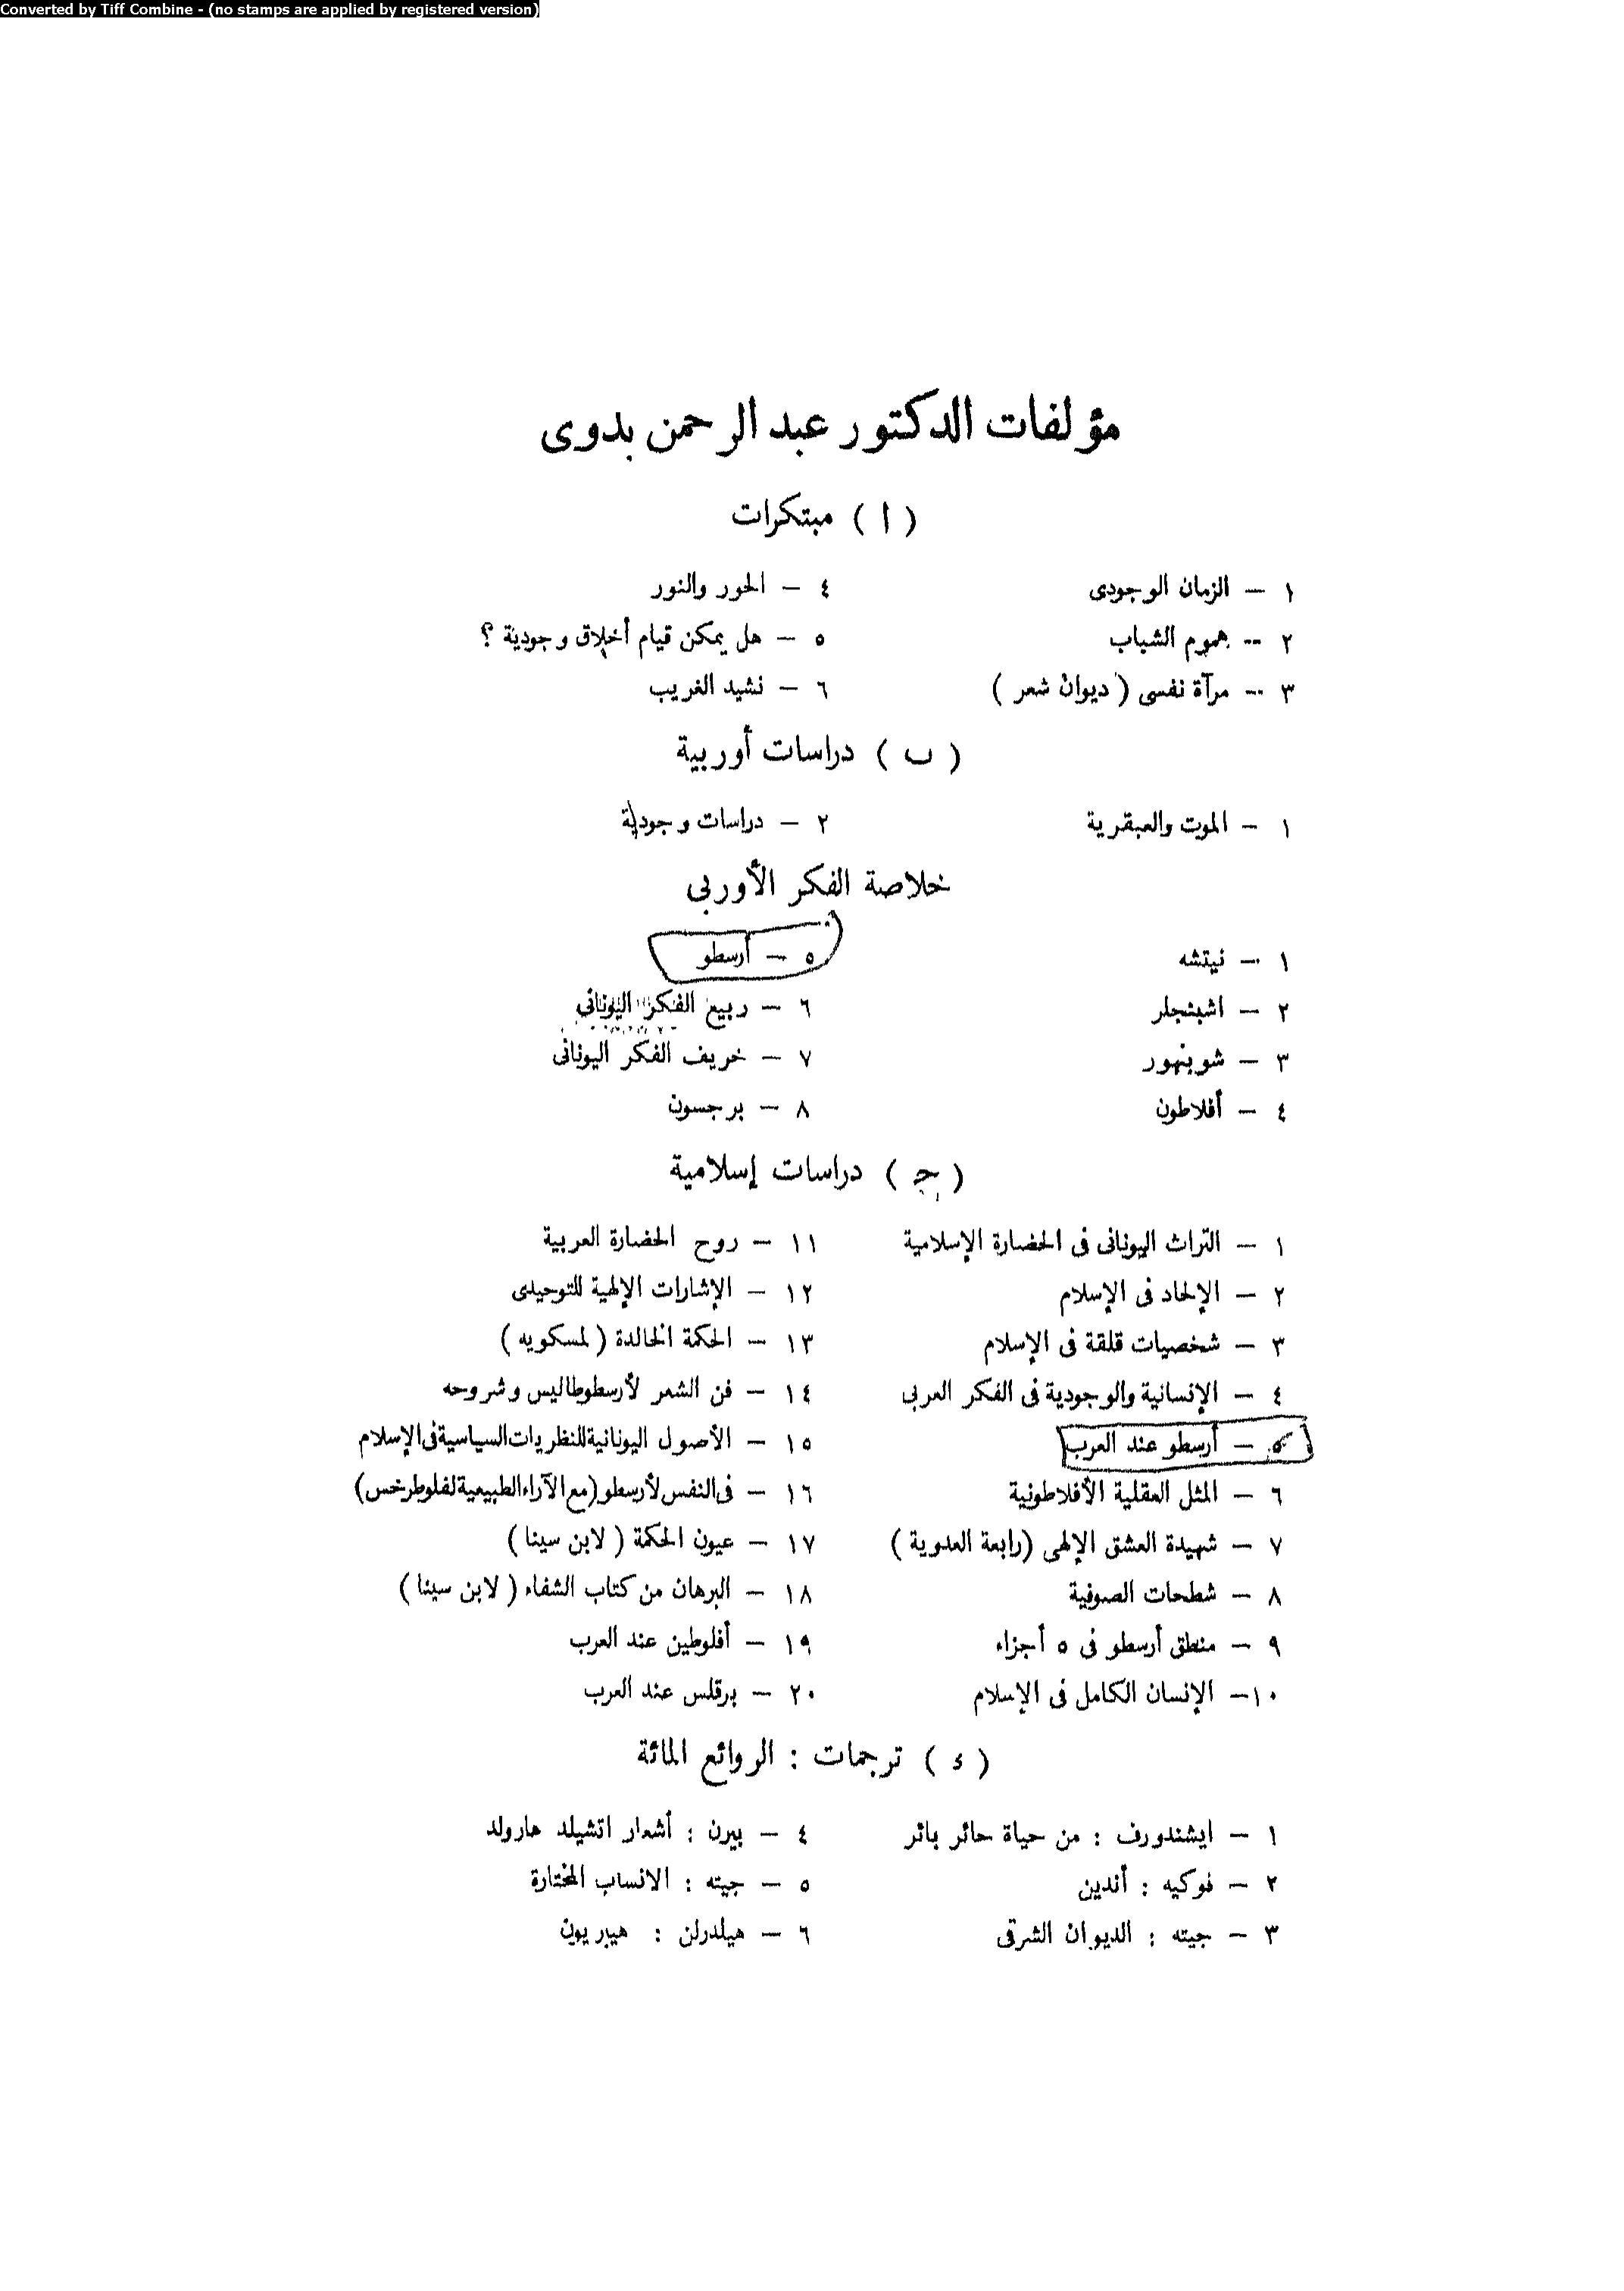 Converted by Tiff Combine - (no stamps are applied by registered version)
مؤلفات الدكتور عبد الرحمن بدوى
( ا ) مبتكرات
١ – الزمان الوجودى
٢ – هموم الشباب
٣ – مرآة نفسى ( ديوان شعر )
٤ – الحور والنور
٥ – هل يمكن قيام أخلاق وجودية ؟
٦ – نشيد الغريب
( ب ) دراسات أوربية
١ – الموت والعبقرية
٢ – دراسات وجودية
خلاصة الفكر الأوربى
١ – نيتشه
٢ – اشبنجلر
٣ – شوبنهور
٤ – أفلاطون
٥ – أرسطو
٦ – ربيع الفكر اليونانى
٧ – خريف الفكر اليونانى
٨ – برجسون
( ج ) دراسات إسلامية
١ – التراث اليونانى فى الحضارة الإسلامية
٢ – الإلحاد فى الإسلام
٣ – شخصيات قلقة فى الإسلام
٤ – الإنسانية والوجودية فى الفكر العربى
٥ – أرسطو عند العرب
٦ – المثل العقلية الأفلاطونية
٧ – شهيدة العشق الإلهى (رابعة العدوية )
٨ – شطحات الصوفية
٩ – منطق أرسطو فى ٥ أجزاء
١٠– الإنسان الكامل فى الإسلام
١١ – روح الحضارة العربية
١٢ – الإشارات الإلهية للتوحيدى
١٣ – الحكمة الخالدة ( لمسكويه )
١٤ – فن الشعر لأرسطوطاليس وشروحه
١٥ – الأصول اليونانية للنظريات السياسية فى الإسلام
١٦ – فى النفس لأرسطو (مع الآراء الطبيعية لفلوطرخس)
١٧ – عيون الحكمة ( لابن سينا )
١٨ – البرهان من كتاب الشفاء ( لابن سينا )
١٩ – أفلوطين عند العرب
٢٠ – برقلس عند العرب
( د ) ترجمات : الروائع المائة
١ – ايشندورف : من حياة حائر بائر
٢ – فوكيه : أندين
٣ – جيته : الديوان الشرقى
٤ – بيرن : أشعار اتشيلد هارولد
٥ – جيته : الانساب المختارة
٦ – هيلدرلن : هيبريون